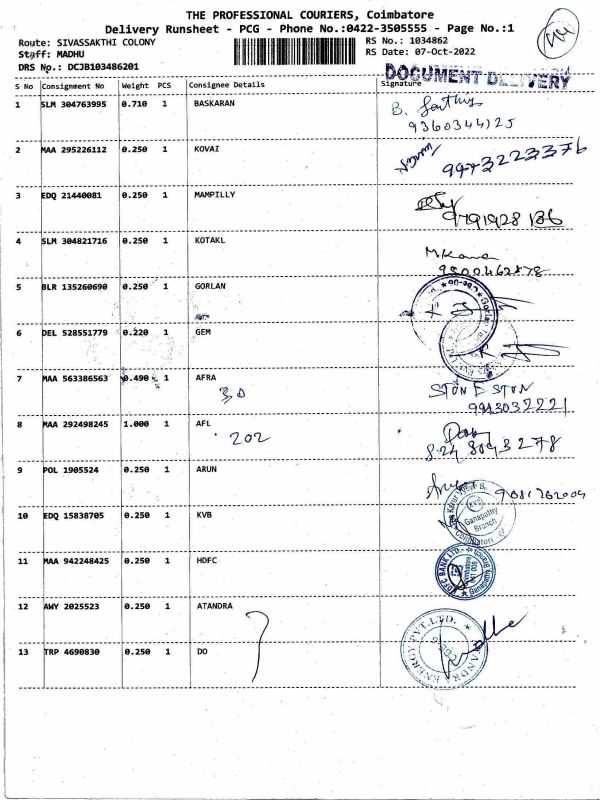 THE PROFESSIONAL COURIERS, Coimbatore
Delivery Runsheet - PCG - Phone No.:0422-3505555 - Page No.:1
Route: SIVASSAKTHI COLONY
RS No.: 1034862
Staff: MADHU
RS Date: 07-Oct-2022
DRS No.: DCJB103486201
DOCUMENT DELIVERY
S No Consignment No Weight PCS Consignee Details Signature
1 SLM 304763995 0.710 1 BASKARAN B.
2 MAA 295226112 0.250 1 KOVAI 9973223376
3 EDQ 21440081 0.250 1 MAMPILLY
9791928186
4 SLM 304821716 0.250 1 KOTAKL
9500462878
5 BLR 135260690 0.250 1 GORLAN
6 DEL 528551779 0.220 1 GEM
7 MAA 563386563 0.490 1 AFRA STON E STON
30 9943032221
8 MAA 292498245 1.000 1 AFL
202
9 POL 1905524 0.250 1 ARUN
10 EDQ 15838705 0.250 1 KVB
Ganapathy
Branch
11 MAA 942248425 0.250 1 HDFC
HDFC BANK LTD.
12 AWY 2025523 0.250 1 ATANDRA
ENERGY PVT.LTD.
13 TRP 4690830 0.250 1 DO